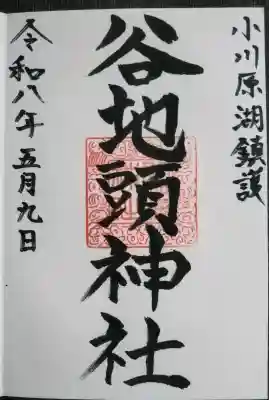 小川原湖鎮護
谷地頭神社
令和八年五月九日